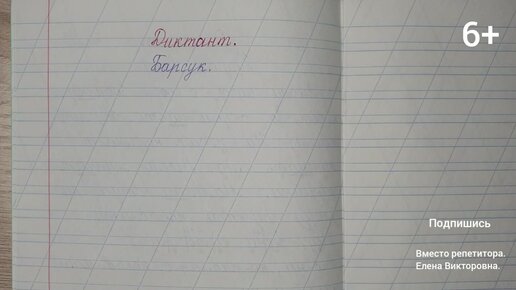 Диктант.
Барсук.
6+
Подпишись
Вместо репетитора.
Елена Викторовна.